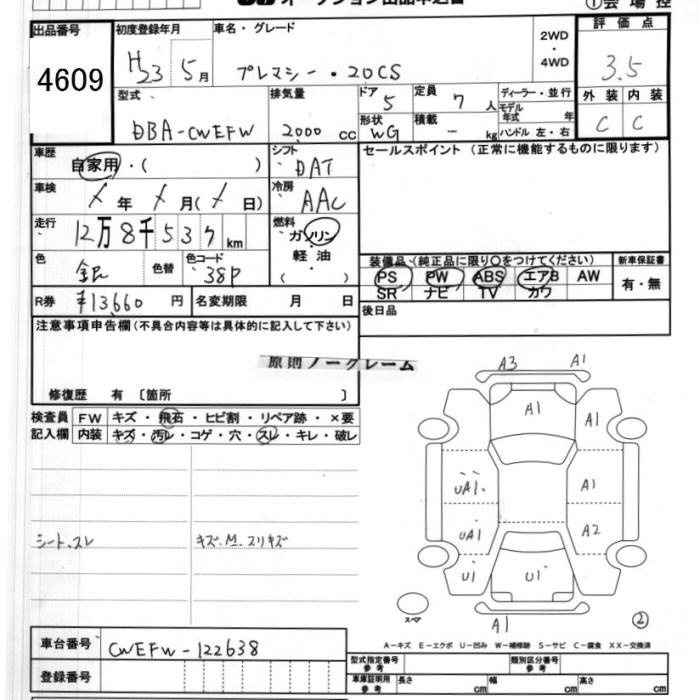 オークション出品申込書
①会場控
出品番号
4609
初度登録年月
H23 5月
車名・グレード
プレマシー・20CS
2WD
・
4WD
評価点
3.5
型式
DBA-CWEFW
排気量
2000 cc
ドア 5
形状 WG
定員 7 人
積載 - kg
ディーラー・並行
モデル年式 年
ハンドル 左・右
外装 内装
C C
車歴
自家用・( )
シフト
DAT
セールスポイント (正常に機能するものに限ります)
車検
X年 X月(X日)
冷房
AAC
走行
12万8千537km
燃料
ガソリン
・
軽油
( )
色
銀
色替
色コード
38P
装備品 (純正品に限り○をつけてください)
PS PW ABS エアB AW
SR ナビ TV カワ
新車保証書
有・無
R券 ¥13,660 円
名変期限 月 日
後日品
注意事項申告欄(不具合内容等は具体的に記入して下さい)
原則ノークレーム
修復歴 有 〔箇所 〕
検査員
記入欄
FW キズ・飛石・ヒビ割・リペア跡・×要
内装 キズ・汚レ・コゲ・穴・スレ・キレ・破レ
シート.スレ
キズ.M.スリキズ
A3 A1
A1 A1
UA1 A1
UA1 A2
U1 U1
A1
スペア
②
A-キズ E-エクボ U-凹み W-補修跡 S-サビ C-腐食 XX-交換済
車台番号
CWEFW-122638
登録番号
型式指定番号
参考
類別区分番号
参考
車庫証明用
参考
長さ cm 幅 cm 高さ cm